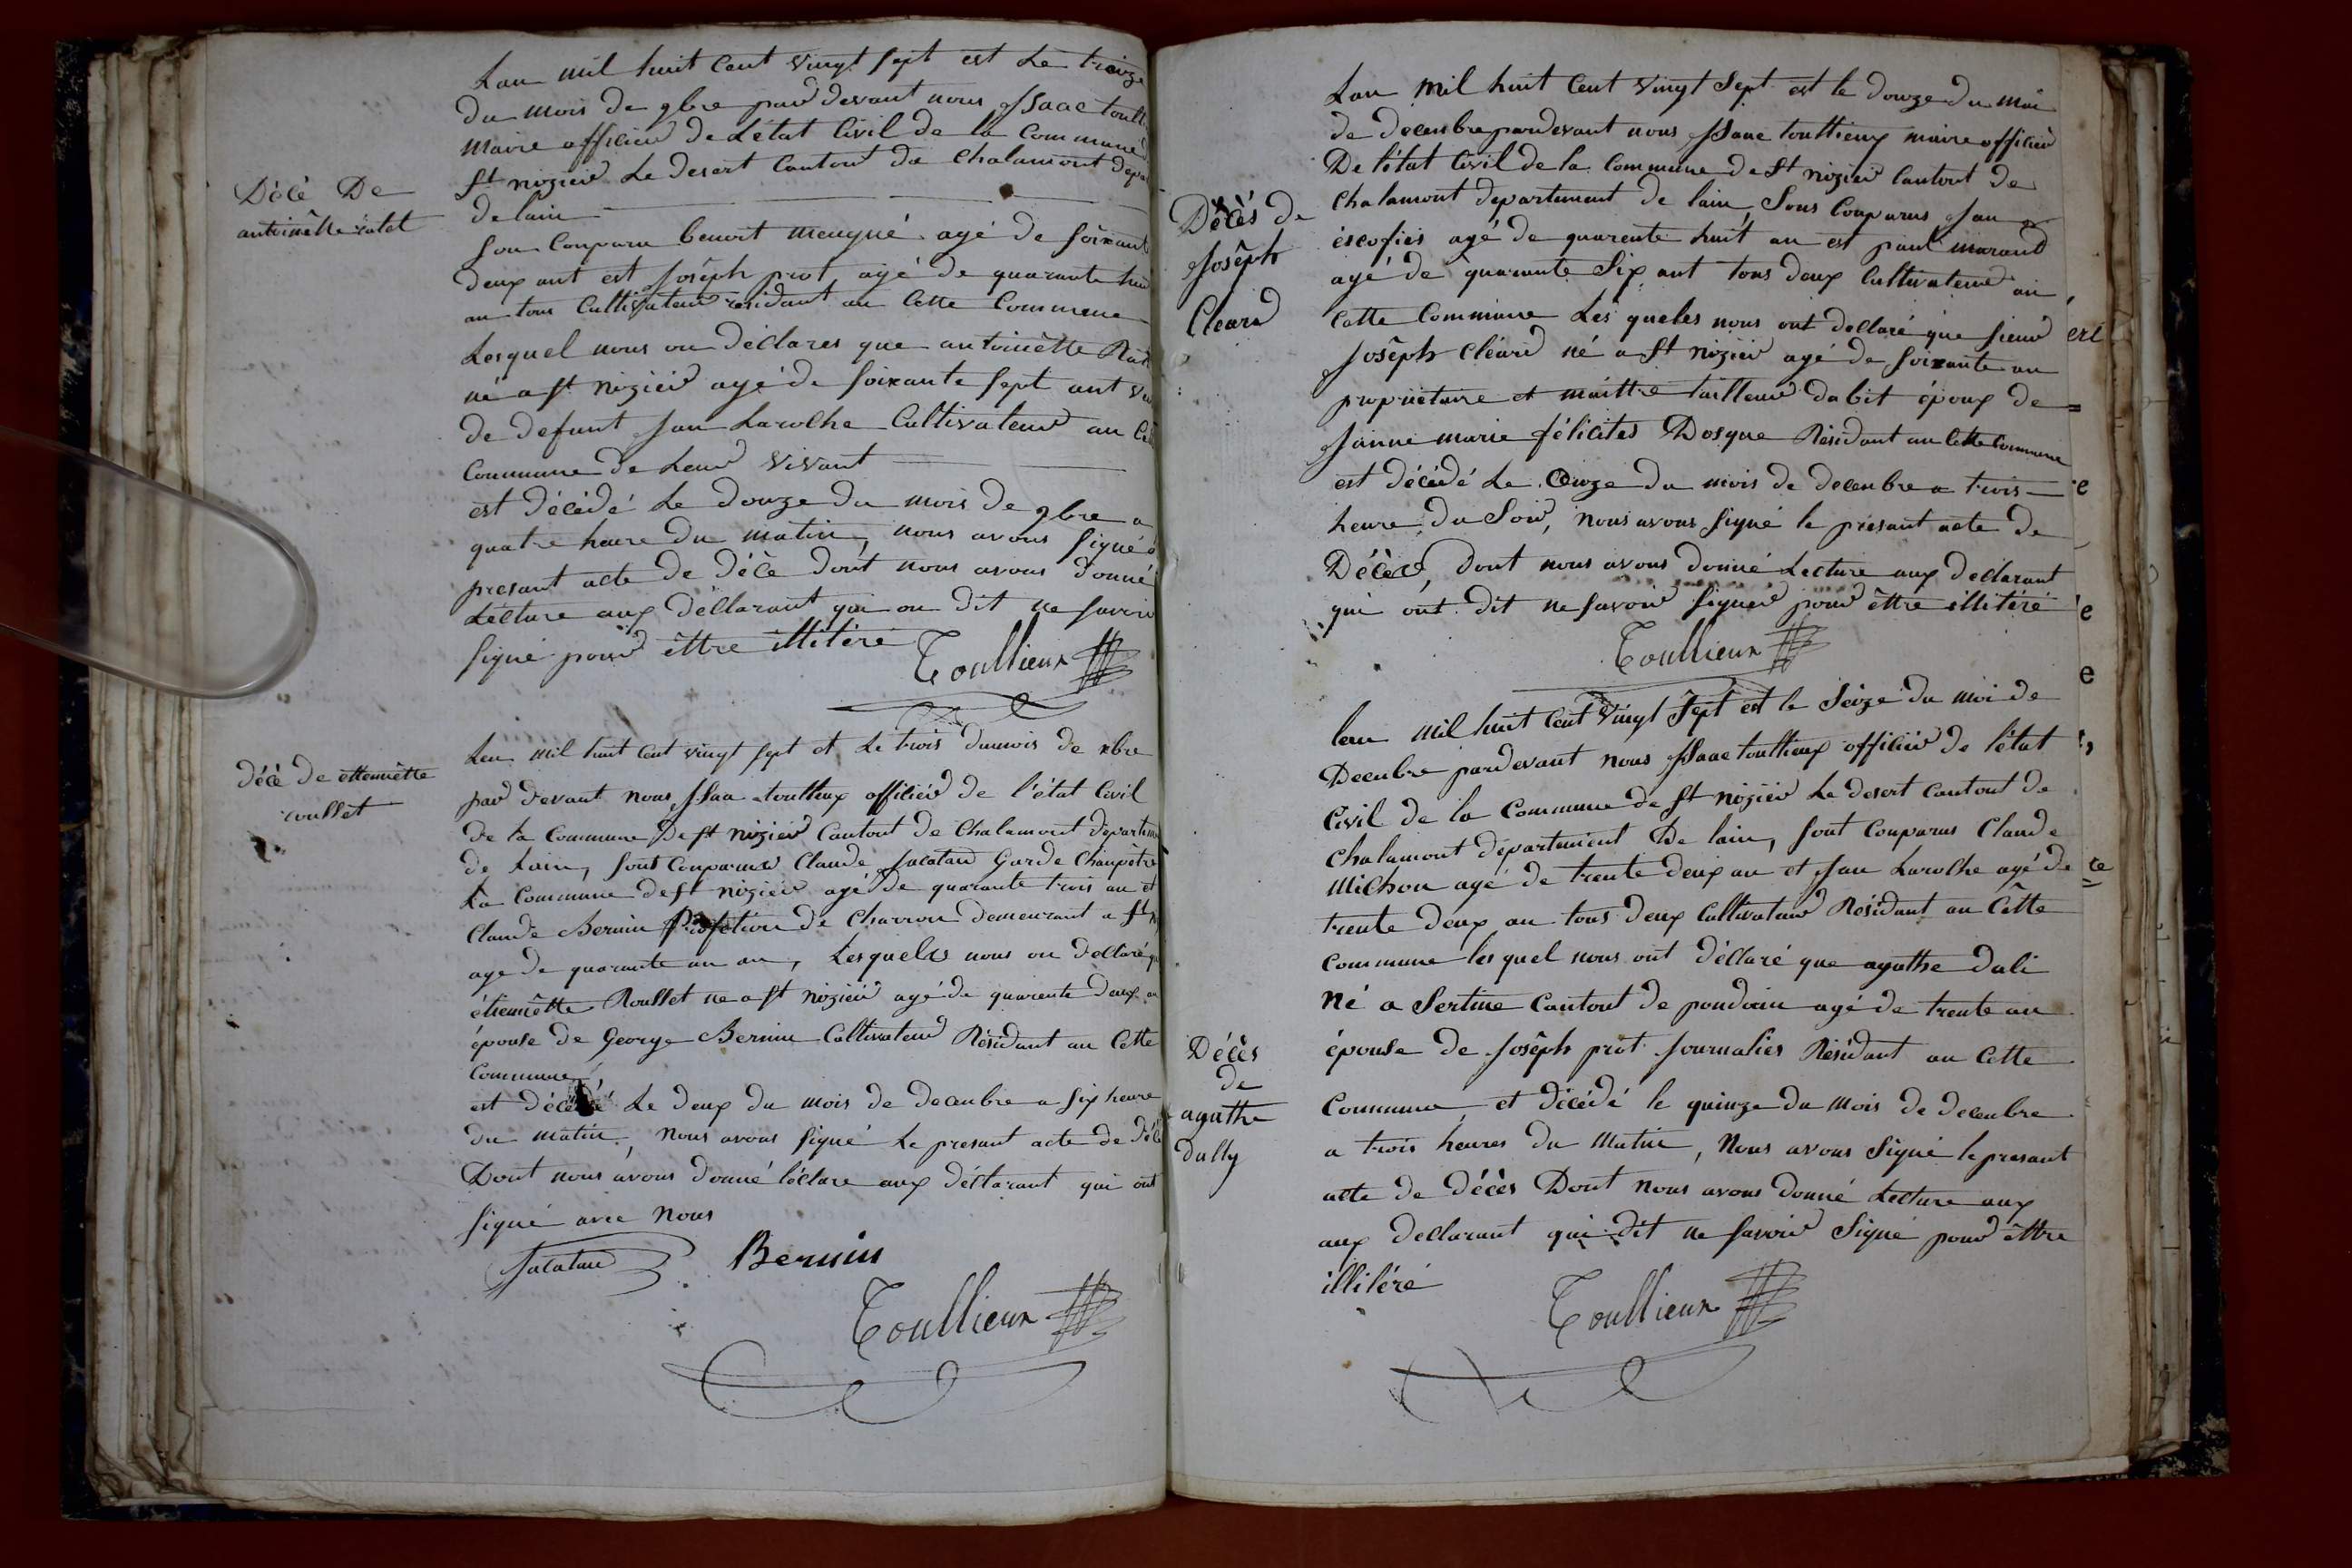 Lan mil huit Cent vingt sept est Le treize
du mois de 9bre par devant nous Isaac toull
maire officier de Létat Civil de la Commune
St nizier Le desert Canton de chalamont depa
delain
Décè De
antoinette ratet
son Conparu benoit meugné agé de soixant
deux ant est Joseph prot agé de quarante hui
an tous Cultivateur residant an Cette Commune
Lesquel nous on déclares que antoinette Rat
né a st nizier agé de soixante sept ant
de defunt Jan Laroche Cultivateur an
Commune de Leur vivant
est décédé Le douze du mois de 9bre a
quatre heure du matin, nous avons signé
presant acte de décè dont nous avons donné
Lecture aux déclarant qui on dit ne savoir
signe pour êttre illitéré
Toullieux
décè de ettennêtte
roullet
Lan mil huit cent vingt sept et Le trois dumois de xbre
par devant nous Isaa toullieux officier de l'état Civil
de la Commune De st nizier Cantont de Chalamont départem
de Lain, sont Conparus Claude Jacatan Garde Chanpêtre
La Commune de st nizier agé de quarante trois an et
Claude Bernin Profetion de Charron demeurant a st
age de quarante un an, Lesquels nous on déclaré
étiennêtte Roullet ne a st nizier agé de quarente deux an
épouse de George Bernin Cultivateur Résidant an Cette
Commune,
est décédé Le deux du mois de decenbre a six heure
du matin, nous avons signé Le presant acte de déc
Dont nous avons donné léclare aux déclarant qui ont
signé avec nous
Jacatan Bernin
Toullieux
Lan mil huit Cent vingt Sept est le douze du moi
de decenbre pardevant nous Isaac toullieux maire officier
De l'état Civil de la Commune de St nizier Cantont de
Chalamont departement de lain, Sons Conparus Jan
Décès de
Joseph
Cleard
éscofies agé de quarente huit an est paul marand
agé de quarante Six ant tous deux Cultivateur an
Cette Commune Les queles nous ont declaré que sieur
Joseph Cléard né a St nizier agé de soixante an
propriétaire et maittre tailleur dabit époux de
Janne marie félicites Dosque Résidant an Cette Commune
est décédé Le Onze du mois de decenbre a trois
heure du Soir, nous avons signé le présant acte de
Décès, dont nous avons donné Lecture aux déclarant
qui ont dit ne savoir signer pour êttre illitéré
Toullieux
lan mil huit Cent vingt Sept est le Seize du moi de
Decenbre pardevant nous Isaac toullieux officier de l'état
Civil de la Commune de St nizier Le desert Cantont de
Chalamont département De lain, sont Conparus Claude
Michon agé de trente deux an et Jan Laroche agé de
trente deux an tous deux Cultivateur Résidant an Cêtte
Commune les quel nous ont déclaré que agathe dali
né a Sertine Cantont de pondain agé de trente an
Décès
de
agathe
dally
épouse de Joseph prot Journalies Résidant an Cette
Commune, et décédé le quinze du mois de decenbre
a trois heures du Matin, nous avons Signé le presant
acte de décès Dont nous avons donné Lecture aux
aux declarant qui dit ne savoir Signé pour êttre
illitéré
Toullieux